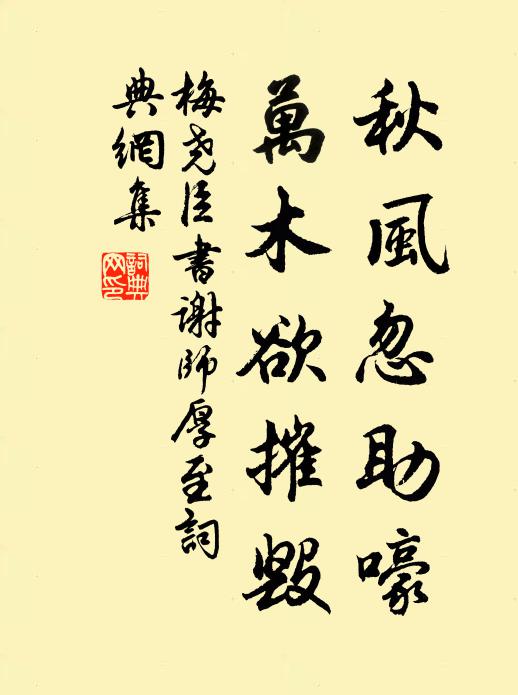 秋風忽助嚎
萬木欲摧毀
梅堯臣書謝師厚至詞
典網集
詞典网印